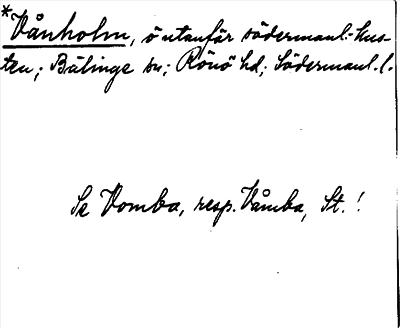 *Vånholm, ö utanför södermanl.-kus-
ten; Bälinge sn; Rönö hd; Södermanl. l.
Se Vomba, resp. Våmba, St.!